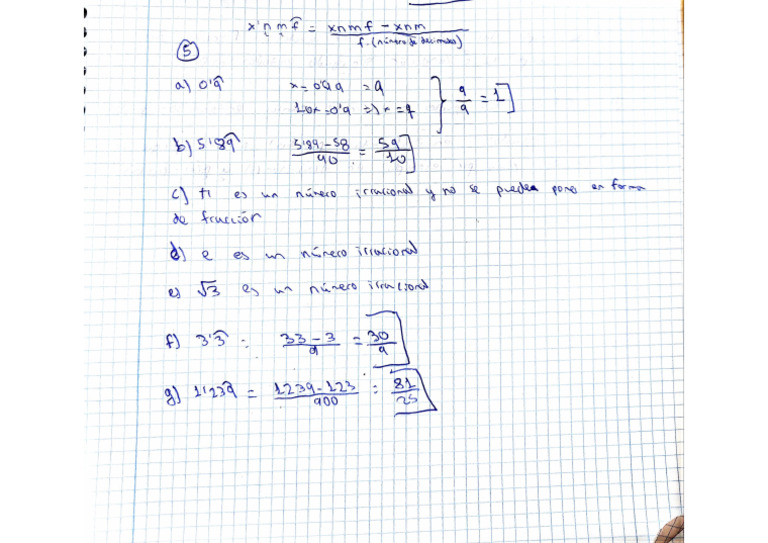 x'nmf̂ = xnmf - xnm / f. (número de decimales)
5
a) 0'9̂ x = 0'99 = 9
10x = 0'9 => x = 9 } 9/9 = 1
b) 5'89̂ 5'89 - 58 / 90 = 59/10
c) π es un número irracional y no se puede poner en forma
de fracción
d) e es un número irracional
e) √3 es un número irracional
f) 3'3̂ = 33 - 3 / 9 = 30/9
g) 1'239̂ = 1239 - 123 / 900 = 81/25